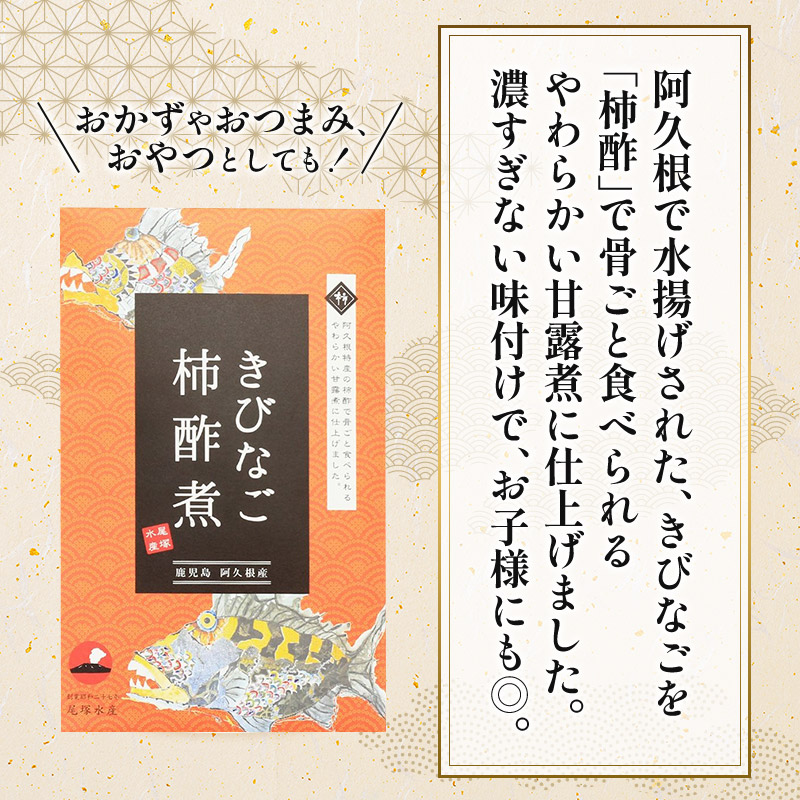 おかずやおつまみ、
おやつとしても!
阿久根で水揚げされた、きびなごを
「柿酢」で骨ごと食べられる
やわらかい甘露煮に仕上げました。
濃すぎない味付けで、お子様にも◎。
柿
阿久根特産の柿酢で骨ごと食べられる
やわらかい甘露煮に仕上げました。
きびなご
柿酢煮
尾塚
水産
鹿児島 阿久根産
創業昭和二十七年
尾塚水産